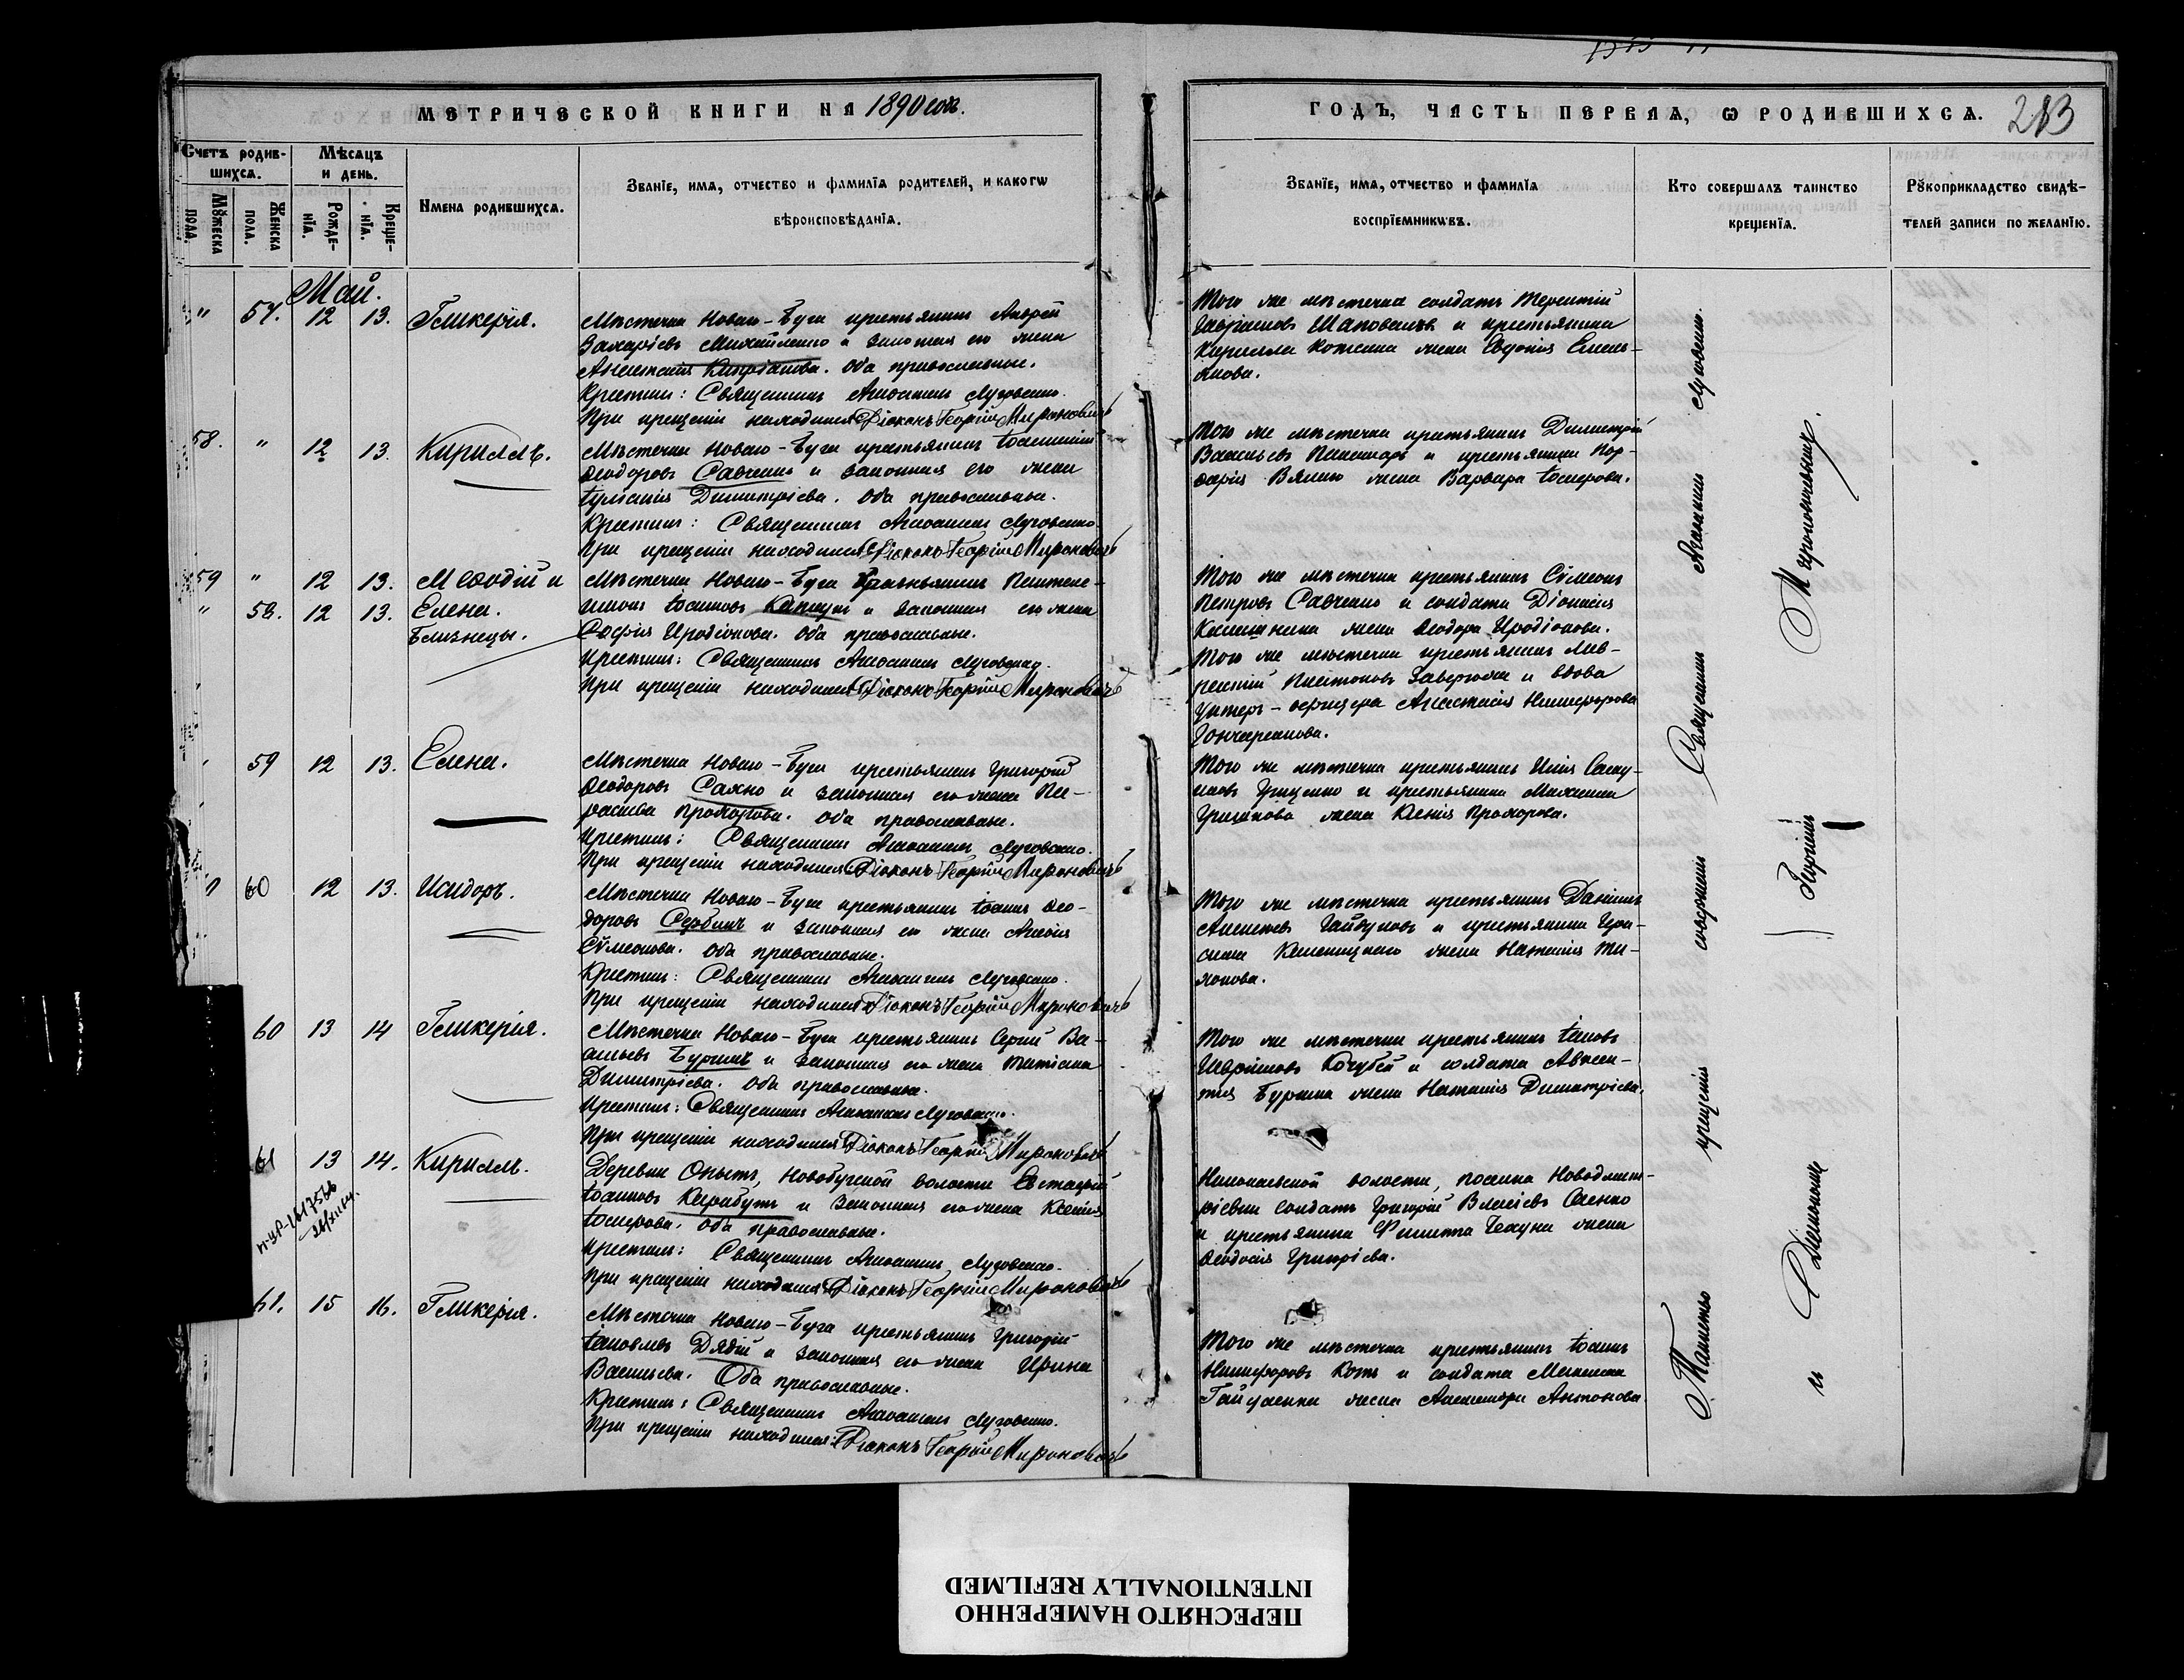 МЕТРИЧЕСКОЙ КНИГИ НА 1890 годъ.
Счетъ родив-
шихся.
Мѣсяцъ
и день.
Мужеска
пола.
Женска
пола.
Рожде-
нія.
Креще-
нія.
Имена родившихся.
Званіе, имя, отчество и фамилія родителей, и какогw
вѣроисповѣданія.
Май.
" 57. 12 13. Гликерія.
Мѣстечка Новаго-Буга крестьянинъ Андрей
Захаріевъ Михайленко и законная его жена
Анастасія Кипріанова. Оба православные.
Крестилъ: Священникъ Аѳанасій Луговенко.
При крещеніи находился Діаконъ Георгій Мироновичъ
58. " 12 13. Кириллъ.
Мѣстечка Новаго-Буга крестьянинъ
Ѳеодоровъ Савченко и законная его жена
Іуліанія Димитріева. Оба православные.
Крестилъ: Священникъ Аѳанасій Луговенко.
При крещеніи находился Діаконъ Георгій Мироновичъ
59 " 12 13. Меѳодій и
" 58. 12 13. Елена.
Близнецы.
Мѣстечка Новаго-Буга крестьянинъ Пантеле-
имонъ Іоанновъ и законная его жена
Софія Иродіонова. Оба православные.
Крестилъ: Священникъ Аѳанасій Луговенко.
При крещеніи находился Діаконъ Георгій Мироновичъ
59 12 13. Елена.
Мѣстечка Новаго-Буга крестьянинъ Григорій
Ѳеодоровъ Сахно и законная его жена Па-
раскева Прохорова. Оба православные.
Крестилъ: Священникъ Аѳанасій Луговенко.
При крещеніи находился Діаконъ Георгій Мироновичъ
" 60 12 13. Исидоръ.
Мѣстечка Новаго-Буга крестьянинъ Іоаннъ Ѳео-
доровъ Сербинъ и законная его жена
Сѵмеонова. Оба православные.
Крестилъ: Священникъ Аѳанасій Луговенко.
При крещеніи находился Діаконъ Георгій Мироновичъ
60 13 14 Гликерія.
Мѣстечка Новаго-Буга крестьянинъ Сергій Ва-
сильевъ и законная его жена Татіана
Димитріева. Оба православные.
Крестилъ: Священникъ Аѳанасій Луговенко.
При крещеніи находился Діаконъ Георгій Мироновичъ
61 13 14. Кириллъ.
Деревни Опытъ, Новобугской волости Евстафій
Іоанновъ Карабутъ и законная его жена Ксенія
Іосифова. Оба православные.
Крестилъ: Священникъ Аѳанасій Луговенко.
При крещеніи находился Діаконъ Георгій Мироновичъ
61. 15 16. Гликерія.
Мѣстечка Новаго-Буга крестьянинъ Григорій
Іаковлевъ Дядій и законная его жена Ирина
Васильева. Оба православные.
Крестилъ: Священникъ Аѳанасій Луговенко.
При крещеніи находился: Діаконъ Георгій Мироновичъ
ГОДЪ, ЧАСТЬ ПЕРВАЯ, Ѡ РОДИВШИХСЯ.
Званіе, имя, отчество и фамилія
воспріемникѡвъ.
Кто совершалъ таинство
крещенія.
Рукоприкладство свидѣ-
телей записи по желанію.
Того же мѣстечка солдатъ Терентій
Гавріиловъ Шаповаловъ и крестьянина
Кирилла жена Евдокія Емель-
янова.
Того же мѣстечка крестьянинъ Димитрій
Васильевъ и крестьянина Пор-
фирія жена Варвара Іосифова.
Того же мѣстечка крестьянинъ Сѵмеонъ
Петровъ Савченко и солдата Діонисія
жена Ѳеодора Иродіонова.
Того же мѣстечка крестьянинъ Лав-
рентій Платоновъ и вдова
унтеръ-офицера Анастасія Никифорова
Гончаренкова.
Того же мѣстечка крестьянинъ Илія
Грищенко и крестьянина Михаила
жена Ксенія Прохорова.
Того же мѣстечка крестьянинъ Даніилъ
и крестьянина Гера-
сима жена Наталія Ти-
хонова.
Того же мѣстечка крестьянинъ Іаковъ
Гавріиловъ Кочубей и солдата Авксен-
тія жена Наталія Димитріева.
волости, поселка Новодмит-
ріевки солдатъ Григорій
и крестьянина Филиппа жена
Ѳеодосія Григоріева.
Того же мѣстечка крестьянинъ Іоаннъ
Никифоровъ Котъ и солдата
жена Александра Антонова.
Таинство крещенія совершилъ Священникъ Аѳанасій Луговенко.
и Діаконъ Георгій Мироновичъ.
ПЕРЕСНЯТО НАМЕРЕННО
INTENTIONALLY REFILMED